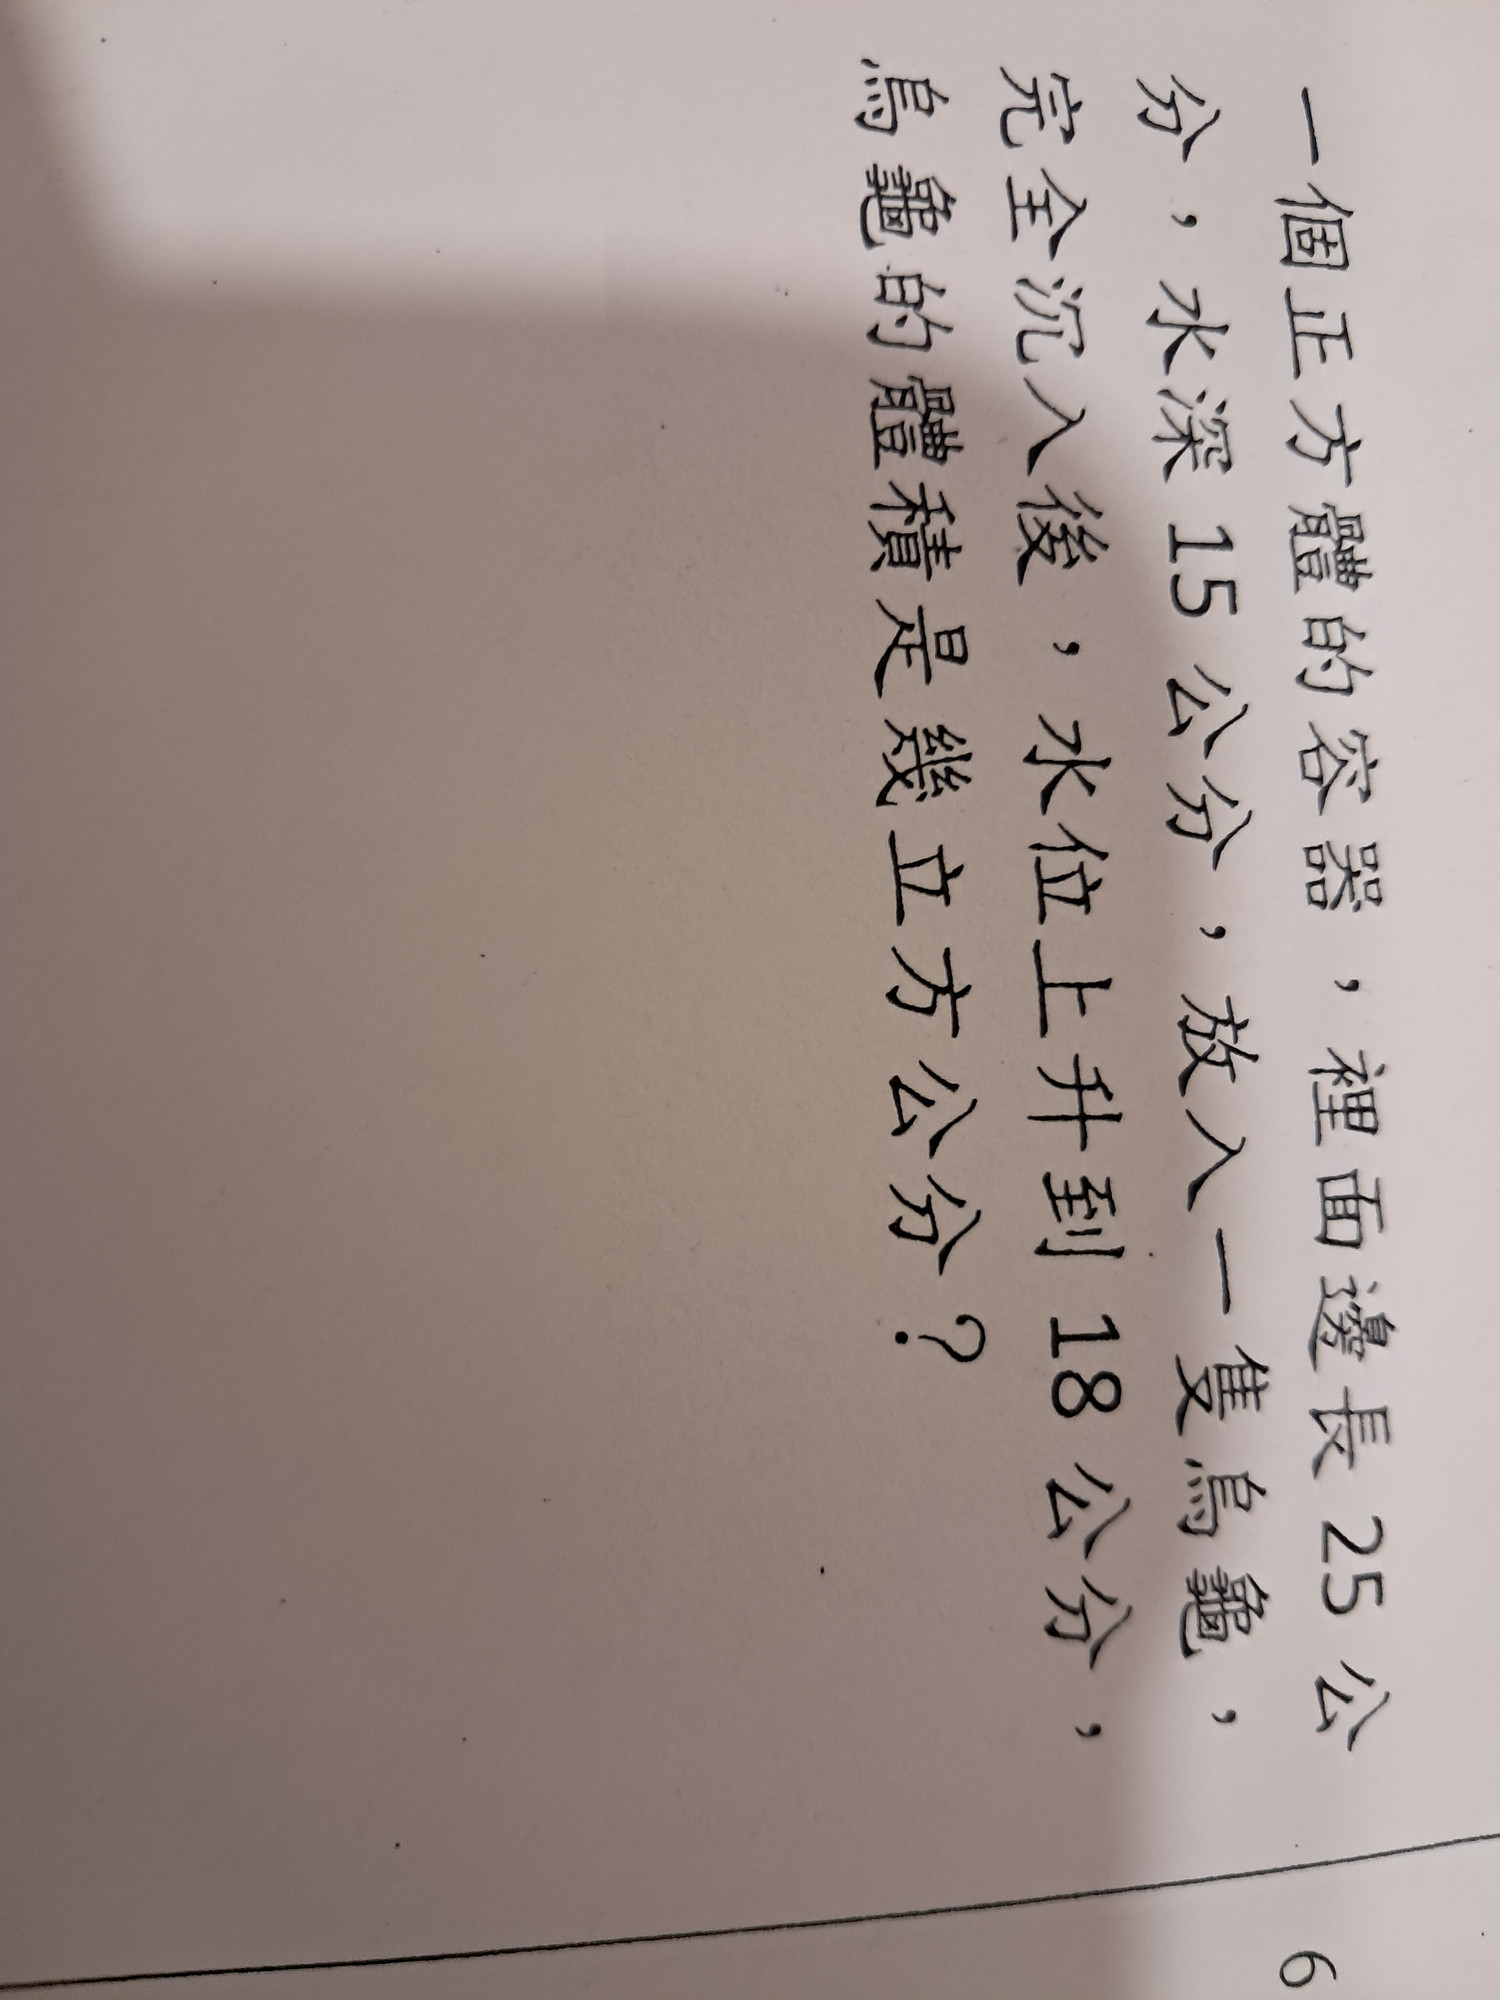 一個正方體的容器，裡面邊長 25 公
分，水深 15 公分，放入一隻烏龜，
完全沉入後，水位上升到 18 公分，
烏龜的體積是幾立方公分？
6